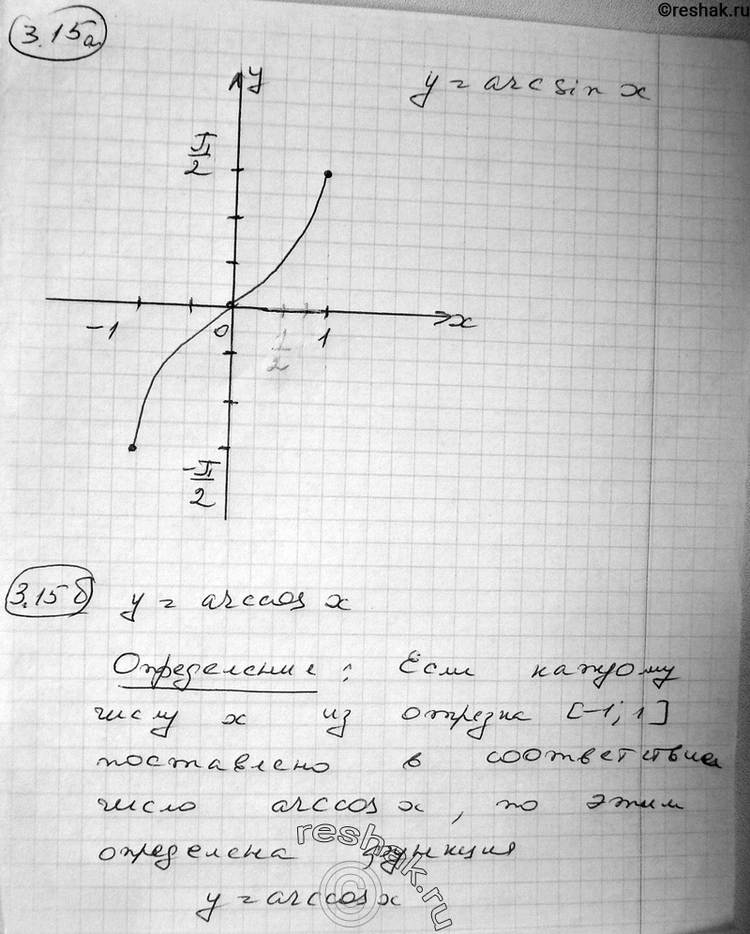 ©reshak.ru
3.15а
y
y = arcsin x
π/2
-1
0
1/2
1
x
-π/2
3.15б
y = arccos x
Определение: Если каждому
числу x из отрезка [-1; 1]
поставлено в соответствие
число arccos x, то этим
определена функция
y = arccos x
reshak.ru
©